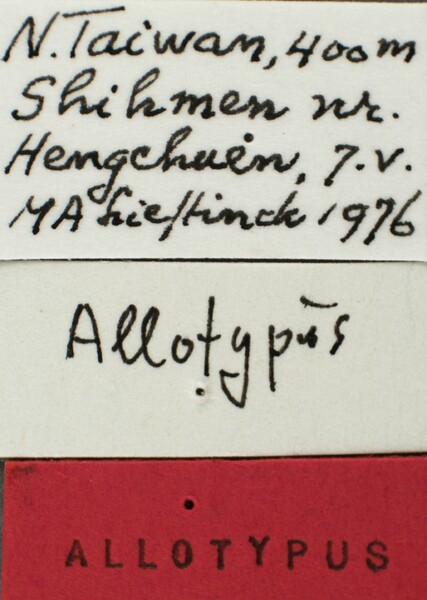 N. Taiwan, 400m
Shihmen nr.
Hengchuen, 7.V.
MA Lieftinck 1976
Allotypus
ALLOTYPUS